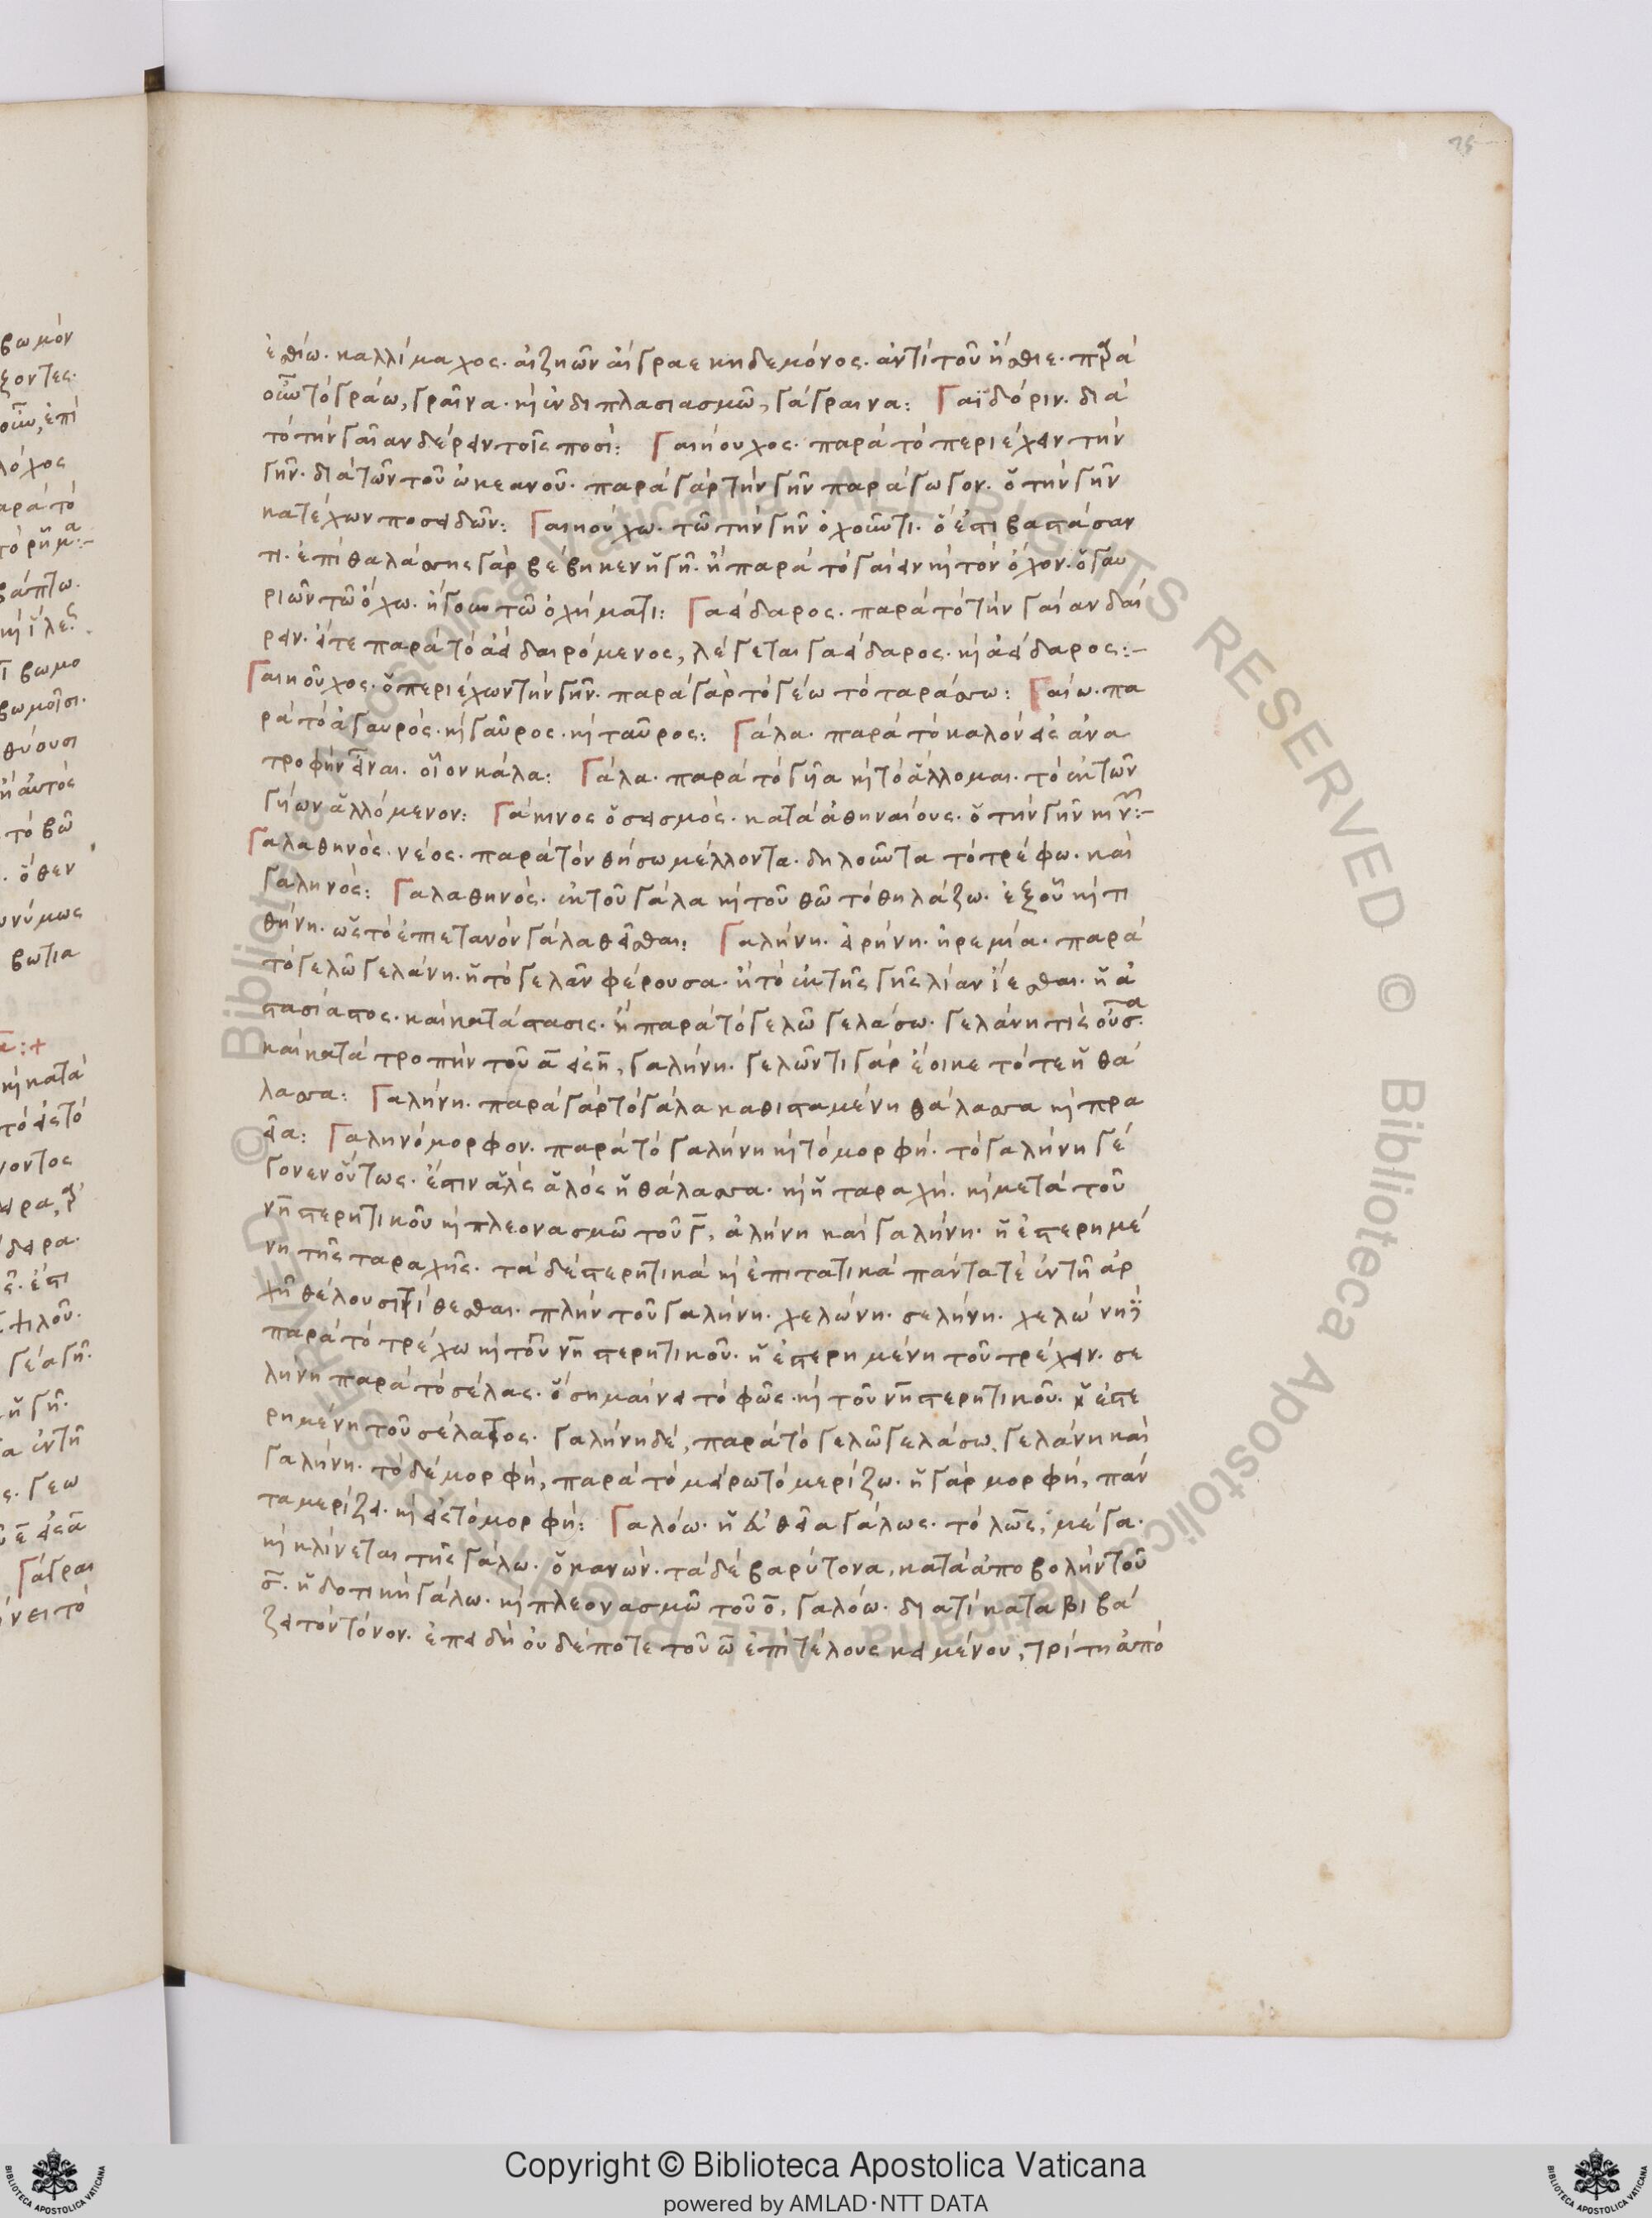 ἐσθίω. καλλίμαχος. αἰζηῶν αἴγραε κηδεμόνος. ἀντὶ τοῦ ἤσθιε. παρὰ
οὖν τὸ γράω, γραῖνα. καὶ ἐν διπλασιασμῷ, γάγραινα: Γαϊδόριν. διὰ
τὸ τὴν γαῖαν δέρειν τοῖς ποσί: Γαιήουχος. παρὰ τὸ περιέχειν τὴν
γῆν. διὰ τῶν τοῦ ὠκεανοῦ. παρὰ γὰρ τὴν γῆν παράγωγον. ὁ τὴν γῆν
κατέχων ποσειδῶν: Γαιηούχω. τῷ τὴν γῆν ὀχοῦντι. ὅ ἐστι βαστάσαν
τι. ἐπὶ θαλάσσης γὰρ βέβηκεν ἡ γῆ. ἢ παρὰ τὸ γαίειν καὶ τὸν ὄχον. ὁ γαυ
ριῶν τῷ ὄχω. ἤγουν τῷ ὀχήματι: Γαείδαρος. παρὰ τὸ τὴν γαίαν δαί
ρειν. εἴτε παρὰ τὸ ἀεὶ δαιρόμενος, λέγεται γαείδαρος. καὶ ἀείδαρος:-
Γαιηοῦχος. ὁ περιέχων τὴν γῆν. παρὰ γὰρ τὸ γέω τὸ ταράσσω: Γαίω. πα
ρὰ τὸ ἀγαυρός. καὶ γαῦρος. καὶ ταῦρος: Γάλα. παρὰ τὸ καλὸν εἰς ἀνα
τροφὴν εἶναι. οἷον κάλα: Γάλα. παρὰ τὸ γῆα καὶ τὸ ἅλλομαι. τὸ ἐκ τῶν
γήων ἁλλόμενον: Γάηνος ὁ σεισμός. κατὰ ἀθηναίους. ὁ τὴν γῆν κιν:-
Γαλαθηνός. νέος. παρὰ τὸν θήσω μέλλοντα. δηλοῦντα τὸ τρέφω. καὶ
γαληνός: Γαλαθηνός. ἐκ τοῦ γάλα καὶ τοῦ θῶ τὸ θηλάζω. ἐξ οὗ καὶ τι
θήνη. ὡς τὸ ἐπιετανὸν γάλα θεῖσθαι: Γαλήνη. εἰρήνη. ἠρεμία. παρὰ
τὸ γελῶ γελάνη. ἡ τὸ γελᾶν φέρουσα. ἢ τὸ ἐκ τῆς γῆς λίαν ἵεσθαι. ἡ ἀ
στασίαστος. καὶ κατάστασις. ἢ παρὰ τὸ γελῶ γελάσω. γελάνη τίς οὖσα.
καὶ κατὰ τροπὴν τοῦ α εἰς η, γαλήνη. γελῶντι γὰρ ἔοικε τότε ἡ θά
λασσα: Γαλήνη. παρὰ γὰρ τὸ γάλα καθισταμένη θάλασσα καὶ πρα
εῖα: Γαληνόμορφον. παρὰ τὸ γαλήνη καὶ τὸ μορφή. τὸ γαλήνη γέ
γονεν οὕτως. ἔστιν ἃλς ἁλὸς ἡ θάλασσα. καὶ ἡ ταραχή. καὶ μετὰ τοῦ
νη στερητικοῦ καὶ πλεονασμῷ τοῦ γ, ἀλήνη καὶ γαλήνη. ἡ ἐστερημέ
νη τῆς ταραχῆς. τὰ δὲ στερητικὰ καὶ ἐπιτατικὰ πάντατε ἐν τῇ ἀρ
χῇ θέλουσι τίθεσθαι. πλὴν τοῦ γαλήνη. χελώνη. σελήνη. χελώνη
παρὰ τὸ τρέχω καὶ τοῦ νη στερητικοῦ. ἡ ἐστερημένη τοῦ τρέχειν. σε
λήνη παρὰ τὸ σέλας. ὃ σημαίνει τὸ φῶς. καὶ τοῦ νη στερητικοῦ. ἡ ἐστε
ρημένη τοῦ σέλατος. γαλήνη δὲ, παρὰ τὸ γελῶ γελάσω, γελάνη καὶ
γαλήνη. τὸ δὲ μορφὴ, παρὰ τὸ μείρω τὸ μερίζω. ἡ γὰρ μορφὴ, πάν
τα μερίζει. καὶ εἰς τὸ μορφή: Γαλόω. ἡ εὐθεῖα γάλως. τὸ λως, μέγα.
καὶ κλίνεται τῆς γάλω. ὁ κανών. τὰ δὲ βαρύτονα, κατὰ ἀποβολὴν τοῦ
σ. ἡ δοτικὴ γάλω. καὶ πλεονασμῷ τοῦ ο, γαλόω. διατί καταβιβά
ζει τὸν τόνον. ἐπειδὴ οὐδέποτε τοῦ ω ἐπὶ τέλους κειμένου, τρίτη ἀπὸ
Copyright © Biblioteca Apostolica Vaticana
powered by AMLAD·NTT DATA